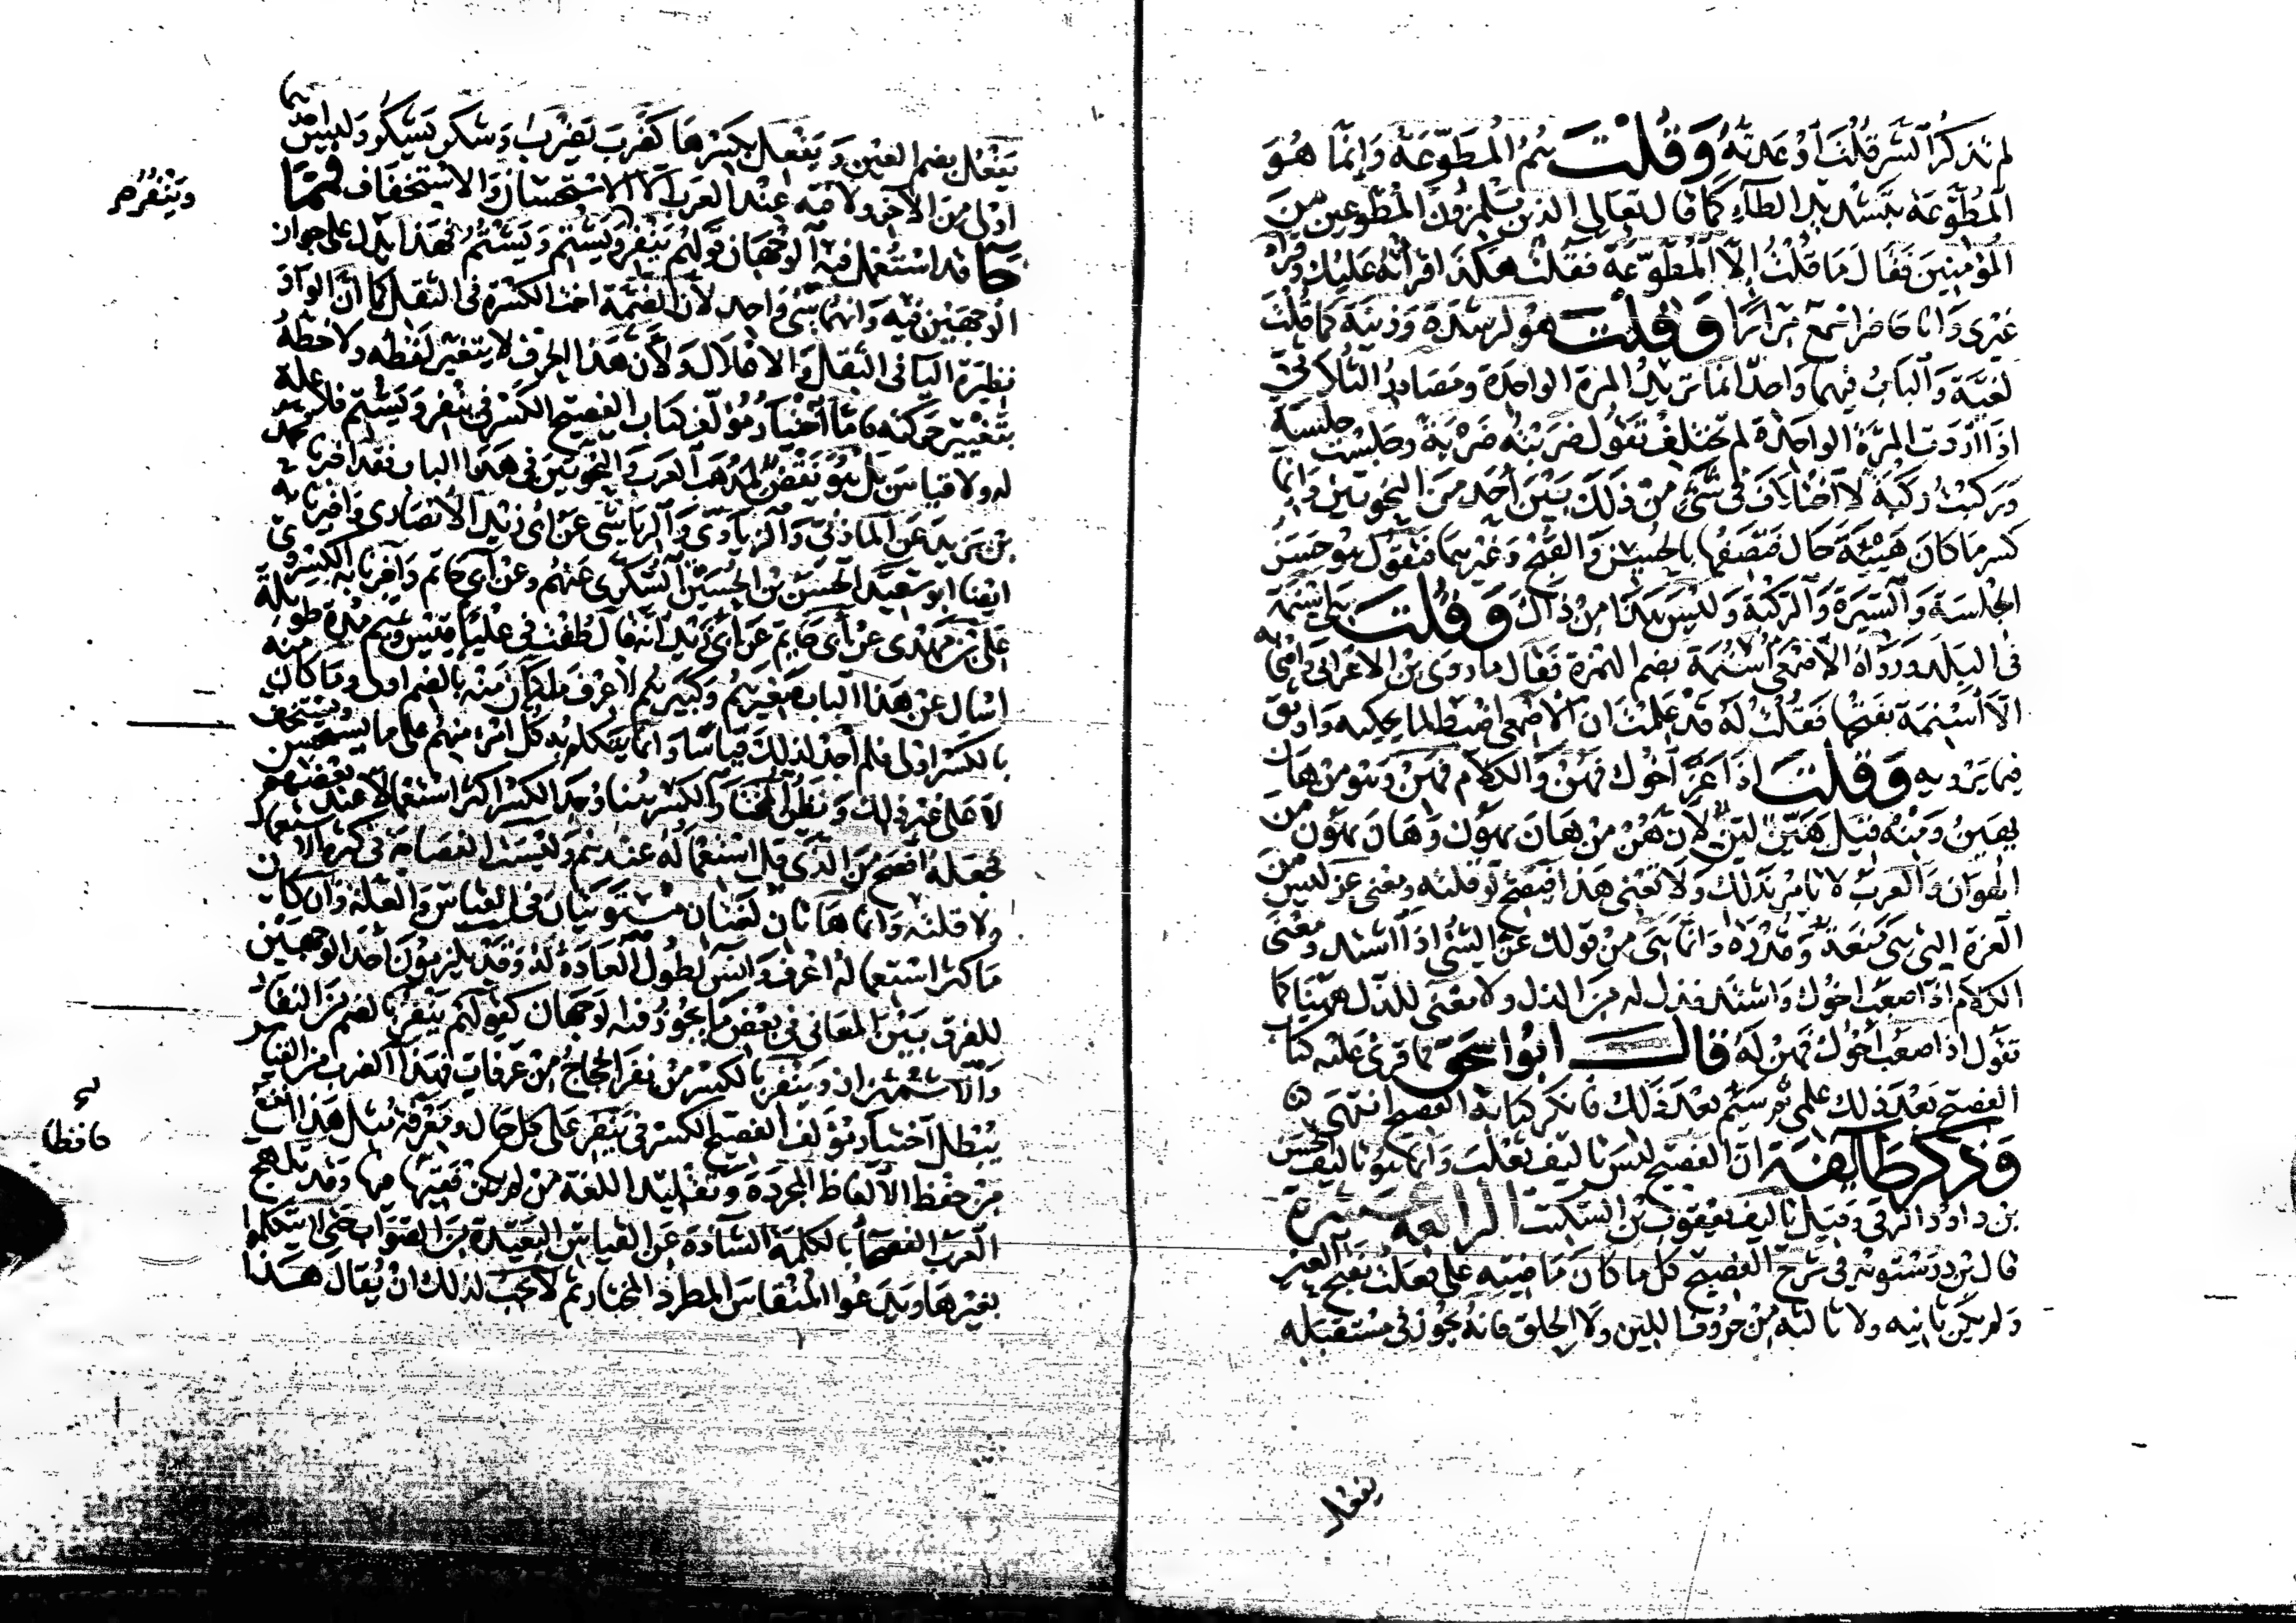 لم تذكر الشر قلت أوعدته وقلت هم المطوعة وانما هو
المطوعة بتشديد الطاء كما قال تعالى الذين يلمزون المطوعين من
المؤمنين فقال ما قلت إلا المطوعة فقلت هكذا قرأته عليك وقرأه
غيرى وأنا حاضر أسمع مرارا وقلت هو لرشدة وزنية كما قلت
لغية والباب فيهما واحد انما تريد المرة الواحدة ومصادر الثلاثي
اذا اردت المرة الواحدة لم تختلف تقول ضربته ضربة وجلست جلسة
وركبت ركبة لا اختلاف في شئ من ذلك بين أحد من النحويين وانما
كسر ما كان هيئة حال فتصفها بالحسن والقبح وغيرهما فتقول هو حسن
الجلسة والسيرة والركبة وليس هذا من ذاك وقلت هى اسنمة
فى البلد ورواه الأصمعى أسنمة بضم الهمزة فقال ما روى ابن الاعرابى وأصحابه
الا أسنمة بفتحها فقلت له قد علمت ان الأصمعى اضبط لما يحكيه واوثق
فيما يرويه وقلت اذا عز أخوك فهن والكلام فهن وهو من هان
يهين ومنه قيل هين لين لان هن من هان يهون وهان يهون من
الهوان والعرب لا تأمر بذلك ولا معنى هذا فصيح لو قلته ومعنى عز ليس من
العزة التى هى منعة وقدرة وانما هى من قولك عز الشئ اذا اشتد ومعنى
الكلام اذا صعب اخوك واشتد فذل له من الذل ولا معنى للذل ههنا كما
تقول اذا صعب أخوك فهن له قال ابو اسحق فما قرئ عليه كتاب
الفصيح بعد ذلك علمى ثم سئم بعد ذلك فانكر كتابه الفصيح انتهى
وذكر طائفة ان الفصيح ليس تاليف ثعلب وانما هو تاليف الحسن
بن داود الرقى وقيل تاليف يعقوب بن السكيت الرابعة عشرة
قال بن درستويه فى شرح الفصيح كل ما كان ماضيه على فعلت بفتح العين
ولم يكن ثانيه ولا ثالثه من حروف اللين ولا الحلق فانه يجوز فى مستقبله
يفعل
يفعل بضم العين ويفعل بكسرها كضرب يضرب وشكر يشكر وليس احدهما
اولى من الآخر ولا فيه عند العرب الا الاستحسان والاستخفاف فمما
جا قد استعمل فيه الوجهان قولهم ينفر ويشتم ويشتم فهذا يدل على جواز
وينفر صح
الوجهين فيه وانهما شئ واحد لان الضمة اخت الكسرة فى الثقل كما ان الواو
نظيرة اليا فى الثقل والاعلال ولان هذا الحرف لا يتغير لفظه ولا خطه
بتغيير حركته فاما اختيار مؤلف كتاب الفصيح الكسر فى ينفر ويشتم فلا علة
له ولا قياس بل هو نقض لمذهب العرب والنحويين فى هذا الباب فقد اخبرنا محمد
بن يزيد عن المازنى والزيادى والرياشى عن أبى زيد الانصارى واخبرنا به
ايضا ابو سعيد الحسن بن الحسين السكرى عنهم وعن أبى حاتم واخبرنا به الكسروى
على بن مهدى عن أبى حاتم عن أبى زيد انه قال طفت فى عليا قيس وتميم مدة طويلة
اسال عن هذا الباب صغيرهم وكبيرهم لاعرف ما كان منه بالضم اولى وما كان منه
بالكسر اولى فلم أجد لذلك قياسا وانما يتكلم به كل امرئ منهم على ما يستحسن ويستخف
لا على غير ذلك ونظن المختار الكسر هنا وجد الكسر اكثر استعمالا عند بعضهم
فجعله افصح من الذى قل استعماله عندهم وليست الفصاحة فى كثرة الاستعمال
ولا قلته وانما هاتان لغتان مستويتان فى القياس والعلة وان كان
ما كثر استعماله اعرف وآنس لطول العادة له وقد يلتزمون أحد الوجهين
للفرق بين المعانى فى بعض ما يجوز فيه الوجهان كقولهم ينفر بالضم من النفار
والاشمئزاز وينفر بالكسر من نفر الحجاج من عرفات فهذا الضرب من القياس
يبطل اختيار مؤلف الفصيح الكسر فى ينفر على كل حال ومعرفة مثل هذا انفع
من حفظ الألفاظ المجردة وتقليد اللغة من لم يكن فقيها فيها وقد يلهج
العرب الفصحاء بالكلمة الشاذة عن القياس البعيدة من الصواب حتى لا يتكلموا
بغيرها ويدعوا المنقاس المطرد المختار ثم لا يجب لذلك ان يقال هذا